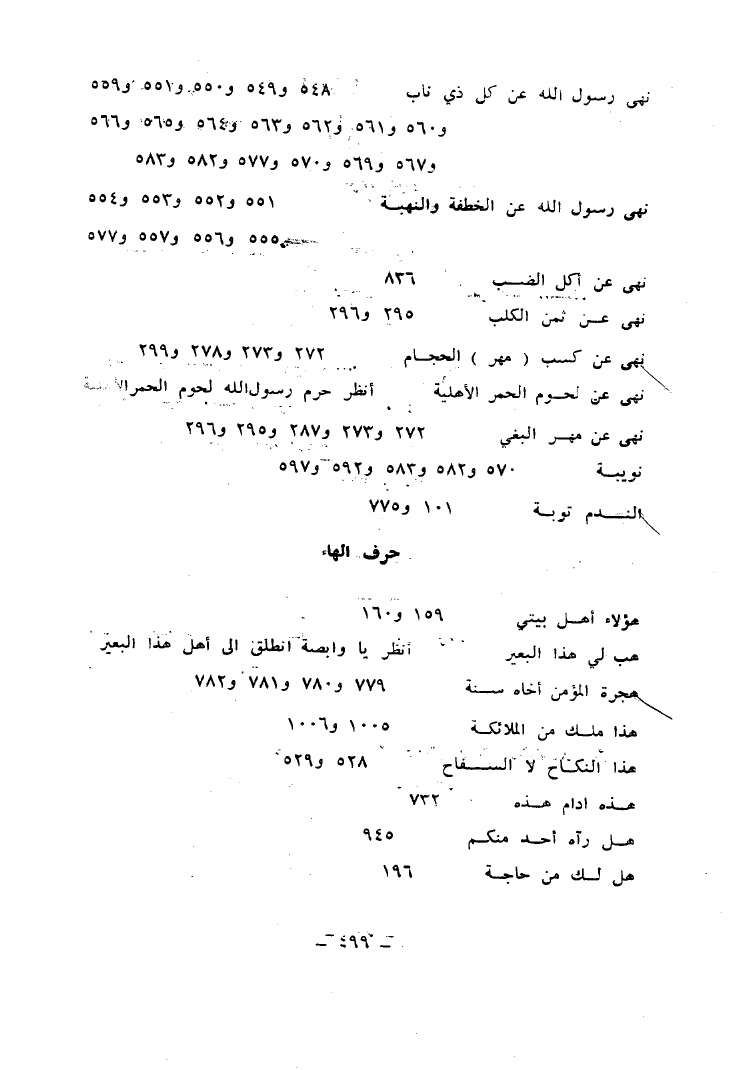 نهى رسول الله عن كل ذي ناب ٥٤٨ و٥٤٩ و٥٥٠ و٥٥١ و٥٥٩
و٥٦٠ و٥٦١ و٥٦٢ و٥٦٣ و٥٦٤ و٥٦٥ و٥٦٦
و٥٦٧ و٥٦٩ و٥٧٠ و٥٧٧ و٥٨٢ و٥٨٣
نهى رسول الله عن الخطفة والنهبة ٥٥١ و٥٥٢ و٥٥٣ و٥٥٤
٥٥٥ و٥٥٦ و٥٥٧ و٥٧٧
نهى عن أكل الضب ٨٣٦
نهى عن ثمن الكلب ٢٩٥ و٢٩٦
نهى عن كسب ( مهر ) الحجام ٢٧٢ و٢٧٣ و٢٧٨ و٢٩٩
نهى عن لحوم الحمر الأهلية أنظر حرم رسول الله لحوم الحمر الأهلية
نهى عن مهر البغي ٢٧٢ و٢٧٣ و٢٨٧ و٢٩٥ و٢٩٦
نويبة ٥٧٠ و٥٨٢ و٥٨٣ و٥٩٢ و٥٩٧
الندم توبة ١٠١ و٧٧٥
حرف الهاء
هؤلاء أهل بيتي ١٥٩ و١٦٠
هب لي هذا البعير أنظر يا وابصة انطلق الى أهل هذا البعير
هجرة المؤمن أخاه سنة ٧٧٩ و٧٨٠ و٧٨١ و٧٨٢
هذا ملك من الملائكة ١٠٠٥ و١٠٠٦
هذا النكاح لا السفاح ٥٢٨ و٥٢٩
هذه ادام هذه ٧٣٢
هل رآه أحد منكم ٩٤٥
هل لك من حاجة ١٩٦
— ٤٩٩ —